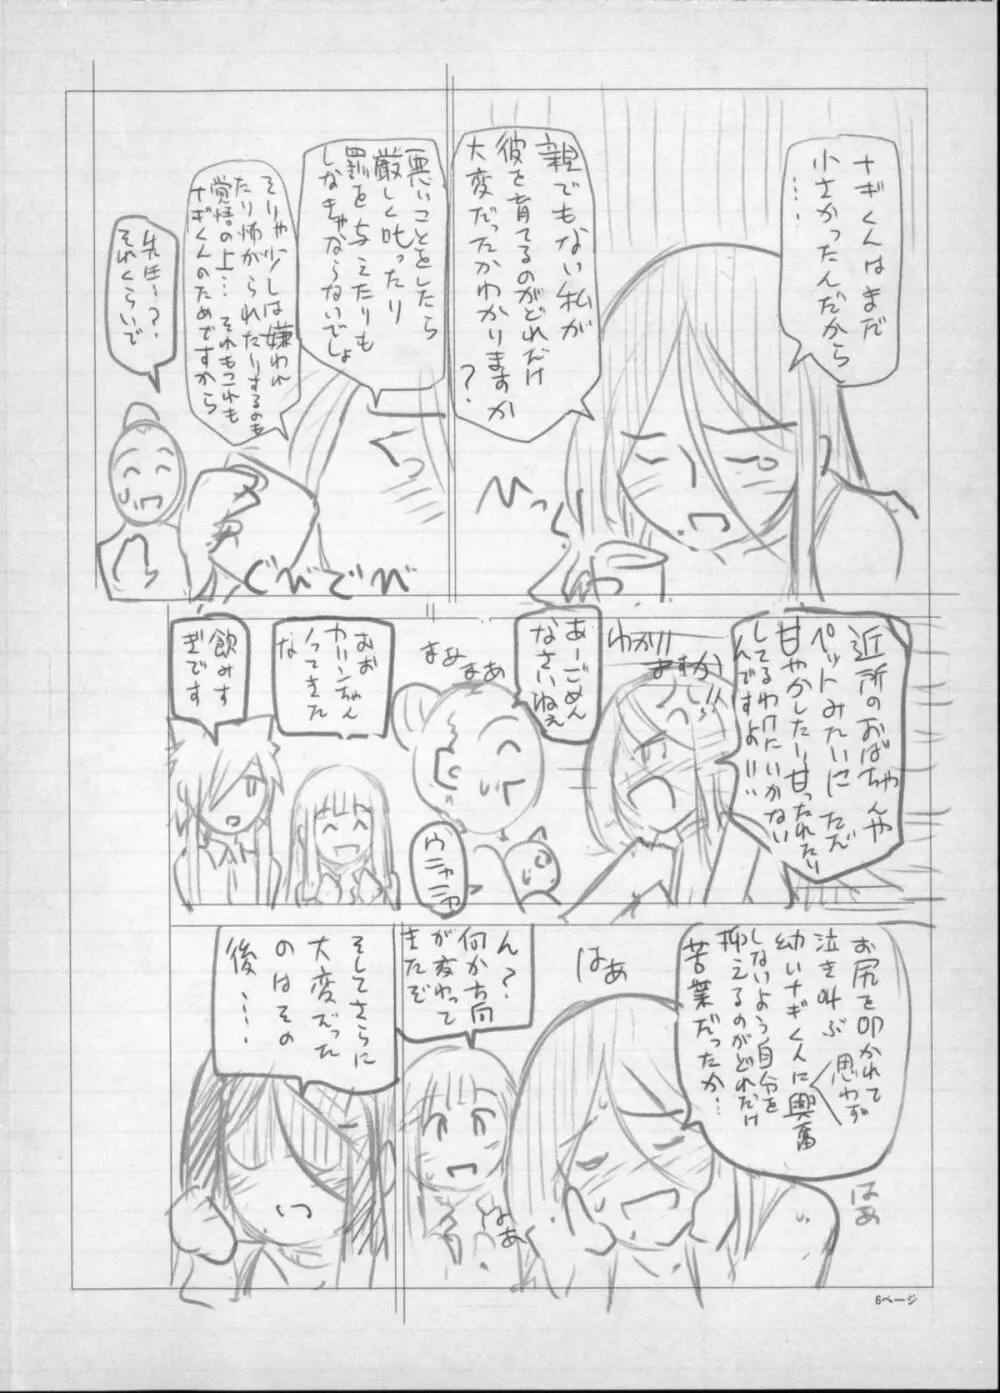 ナギくんはまだ
小さかったんだから
……
親でもない私が
彼を育てるのがどれだけ
大変だったかわかりますか
?
ひっく
悪いことをしたら
厳しく叱ったり
罰を与えたりも
しなきゃならないでしょ
そりゃ少しは嫌われ
たり怖がられたりするのも
覚悟の上… それもこれも
ナギくんのためですから
先生〜?
それくらいで
ぐびぐび
近所のおばちゃんや
ペットみたいにただ
甘やかしたり甘ったれたり
してるわけにいかない
んですよ!!
わかり
ますか
あーごめん
なさいねえ
まあ
まあ
ウニャニャ
おお
カーンちゃん
ノってきた
な
飲みす
ぎです
はあ
はあ
はあ
ん?
何か方向
が変わって
きたぞ
そしてさらに
大変だった
のはその
後……
6ページ